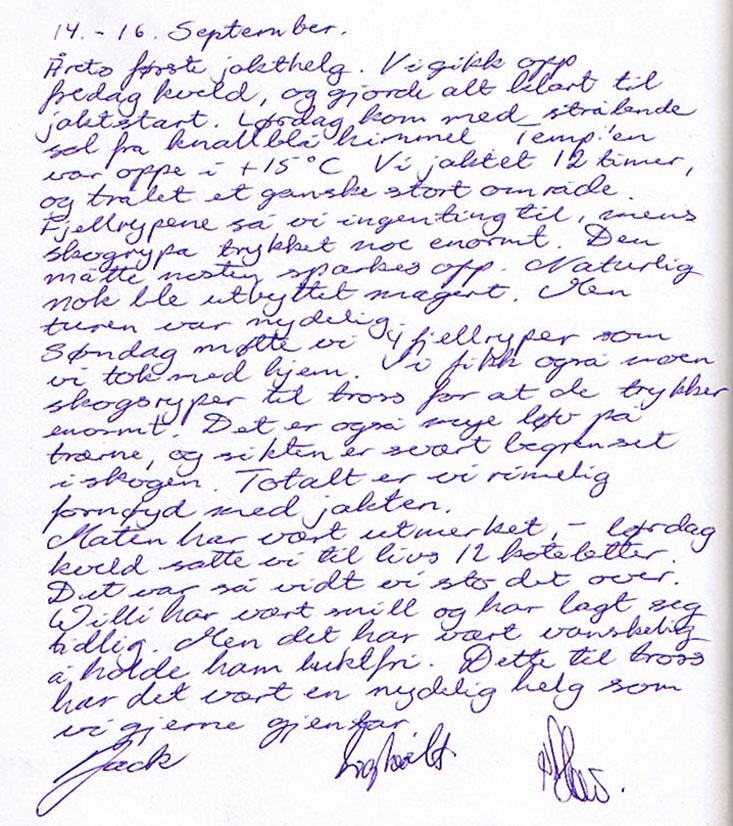 14. - 16. September.
Årets første jakthelg. Vi gikk opp
fredag kveld, og gjorde alt klart til
jaktstart. Lørdag kom med strålende
sol fra knallblå himmel Temp.'en
var oppe i +15°C Vi jaktet 12 timer,
og trålet et ganske stort område.
Fjellrypene så vi ingenting til, mens
skogrypa trykket noe enormt. Den
måtte nesten sparkes opp. Naturlig
nok ble utbyttet magert. Men
turen var nydelig.
Søndag møtte vi 4 fjellryper som
vi tok med hjem. Vi fikk også noen
skogsryper til tross for at de trykker
enormt. Det er også mye løv på
trærne, og sikten er svært begrenset
i skogen. Totalt er vi rimelig
fornøyd med jakten.
Maten har vært utmerket, - lørdag
kveld satte vi til livs 12 koteletter.
Det var så vidt vi sto det over.
Willi har vært snill og har lagt seg
tidlig. Men det har vært vanskelig
å holde ham luktfri. Dette til tross
har det vært en nydelig helg som
vi gjerne gjentar
Jack